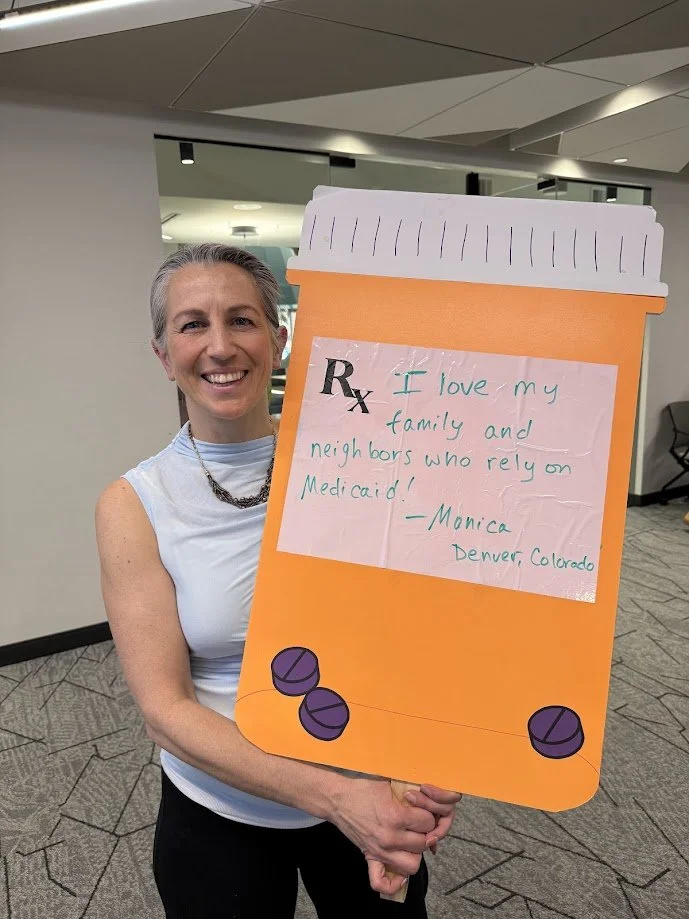 Rx I love my
family and
neighbors who rely on
Medicaid!
— Monica
Denver, Colorado